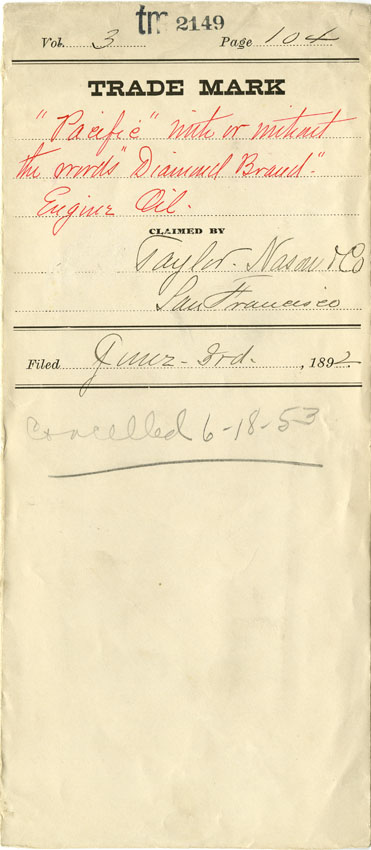 tm 2149
Vol. 3 Page 104
TRADE MARK
"Pacific" with or without
the words "Diamond Brand".
Engine Oil.
CLAIMED BY
Taylor. Nason & Co
San Francisco
Filed June 3rd. , 1892.
Cancelled 6-18-53